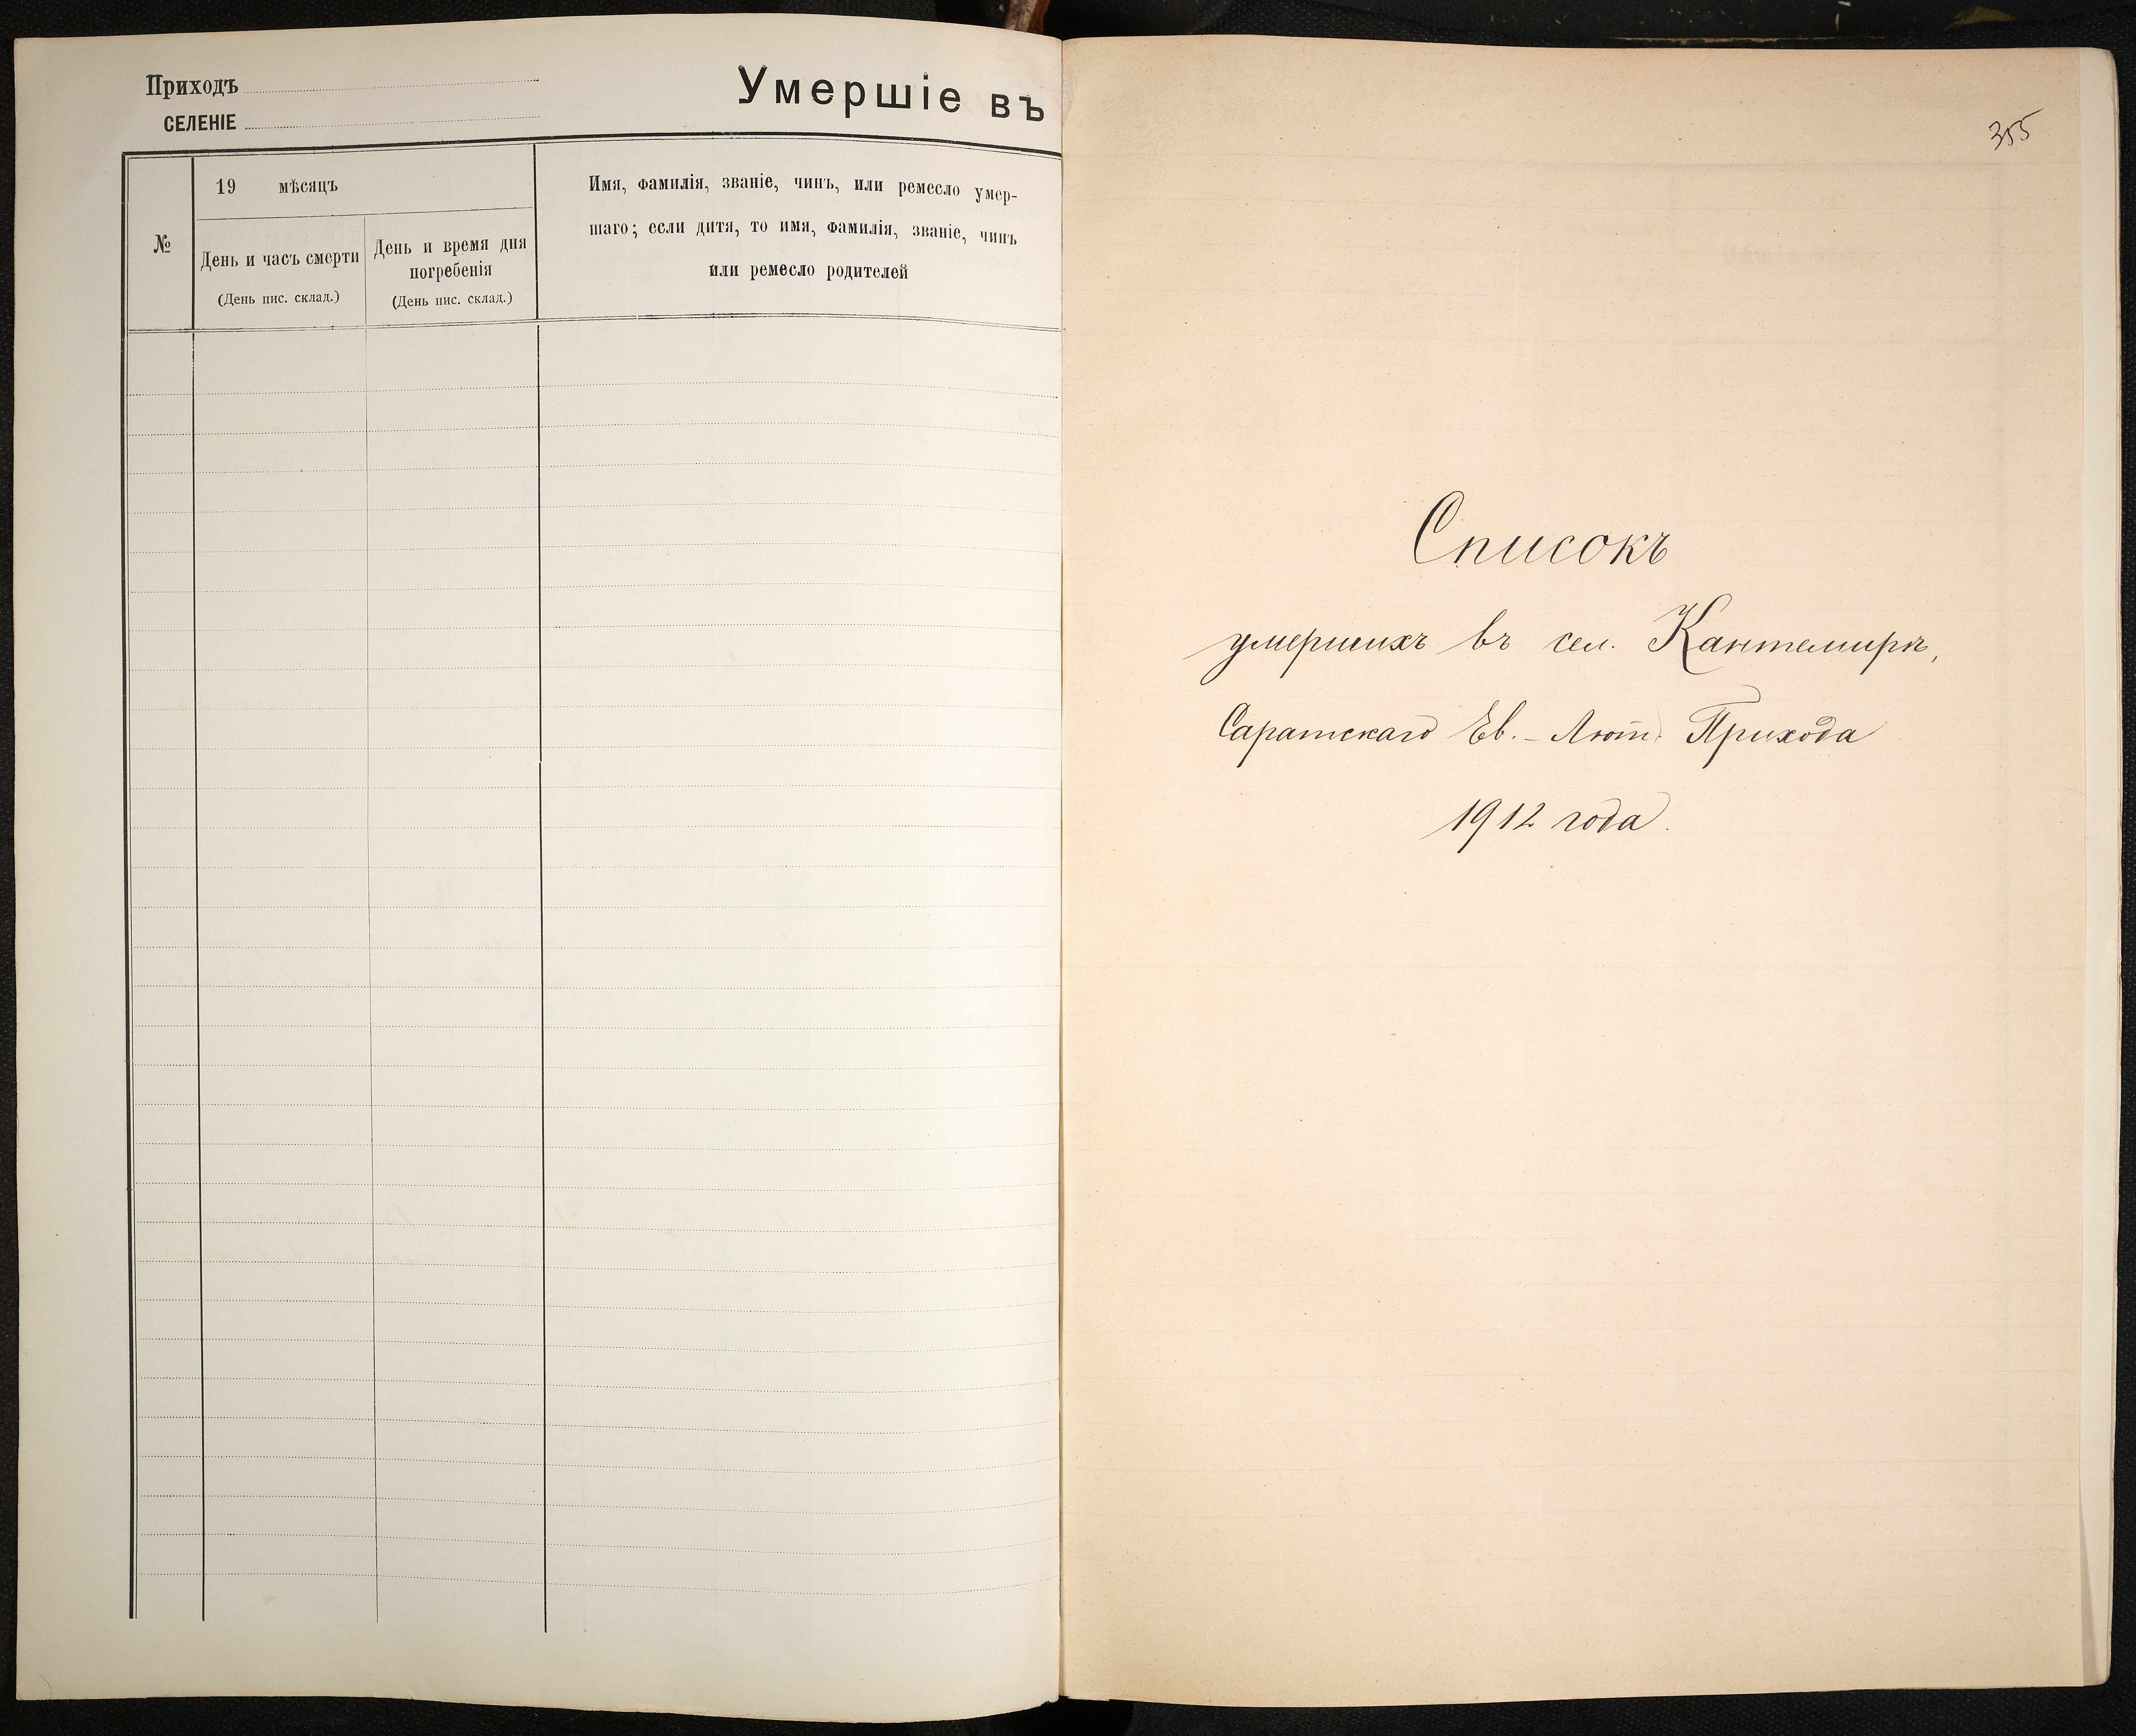 Приходъ
СЕЛЕНІЕ
Умершіе въ
№
19 мѣсяцъ
День и часъ смерти
(День пис. склад.)
День и время дня
погребенія
(День пис. склад.)
Имя, фамилія, званіе, чинъ, или ремесло умер-
шаго; если дитя, то имя, фамилія, званіе, чинъ
или ремесло родителей
355
Списокъ
умершихъ въ сел. Кантемиръ,
Саратскаго Ев.-Лют. Прихода
1912 года.